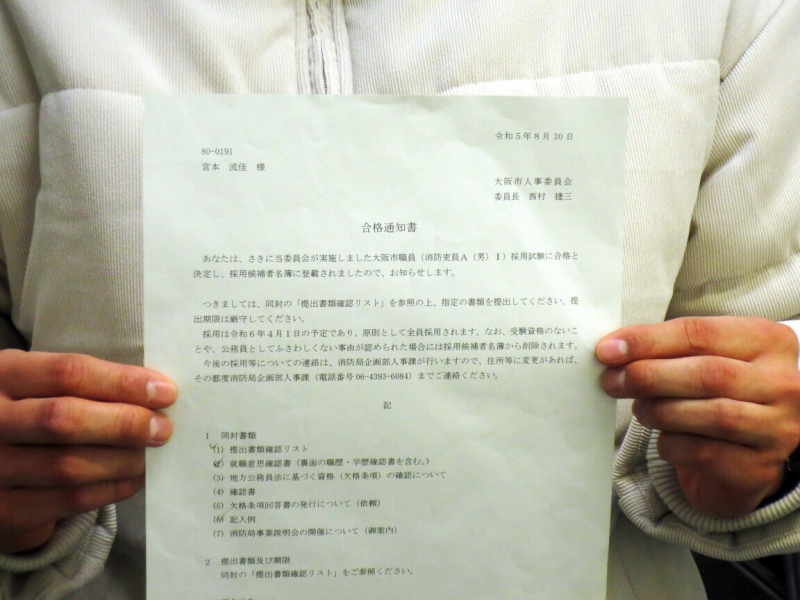 令和5年8月30日
80-0191
宮本 流佳 様
大阪市人事委員会
委員長 西村 捷三
合格通知書
あなたは、さきに当委員会が実施しました大阪市職員（消防吏員A（男）Ⅰ）採用試験に合格と
決定し、採用候補者名簿に登載されましたので、お知らせします。
つきましては、同封の「提出書類確認リスト」を参照の上、指定の書類を提出してください。提
出期限は厳守してください。
採用は令和6年4月1日の予定であり、原則として全員採用されます。なお、受験資格のないこ
とや、公務員としてふさわしくない事由が認められた場合には採用候補者名簿から削除されます。
今後の採用等についての連絡は、消防局企画部人事課が行いますので、住所等に変更があれば、
その都度消防局企画部人事課（電話番号06-4393-6084）までご連絡ください。
記
1 同封書類
(1) 提出書類確認リスト
(2) 就職意思確認書（裏面の職歴・学歴確認書を含む。）
(3) 地方公務員法に基づく資格（欠格条項）の確認について
(4) 確認書
(5) 欠格条項回答書の発行について（依頼）
(6) 記入例
(7) 消防局事業説明会の開催について（御案内）
2 提出書類及び期限
同封の「提出書類確認リスト」をご参照ください。